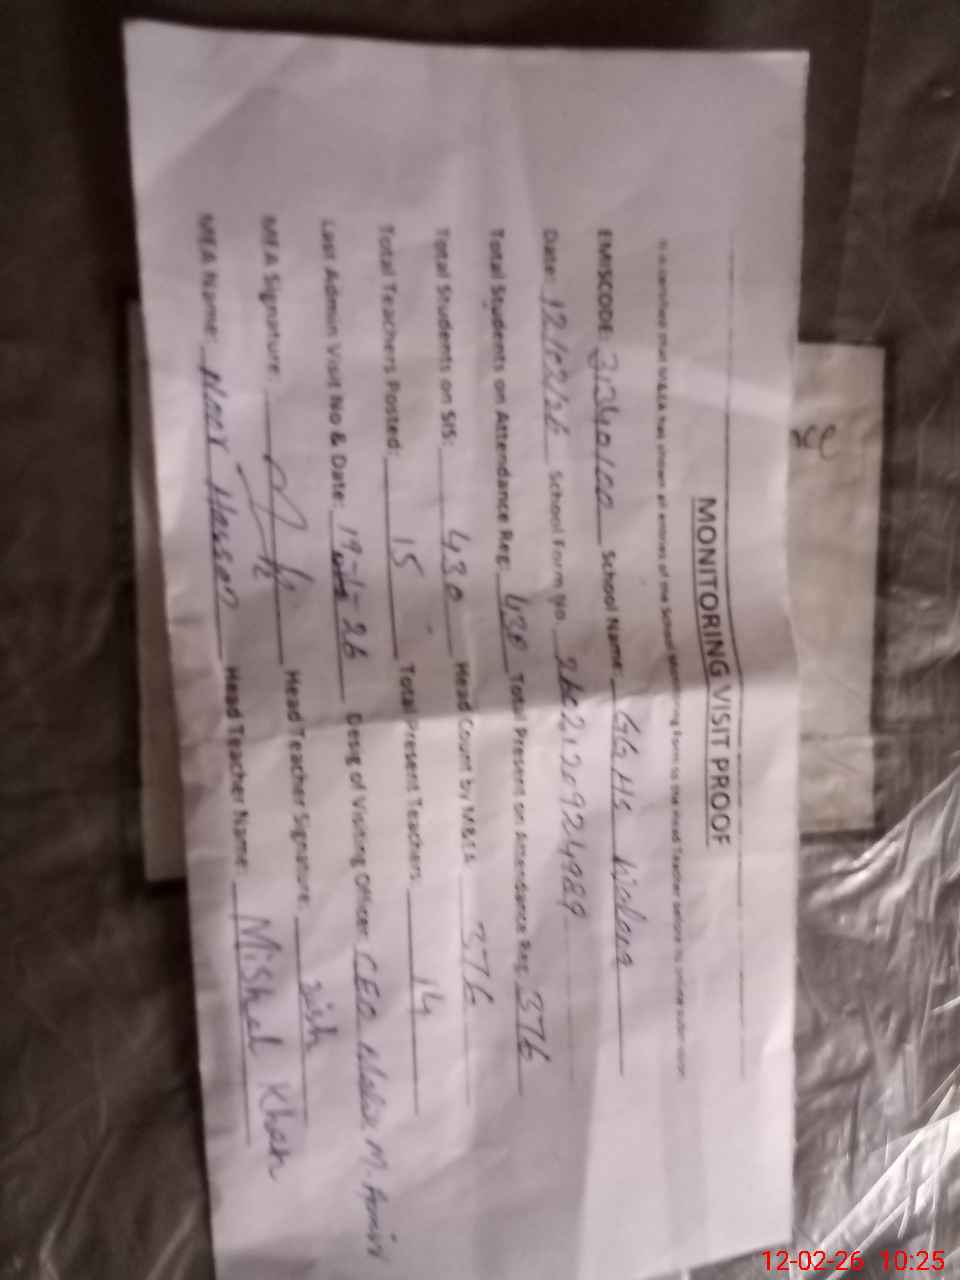 MONITORING VISIT PROOF
It is certified that MEA has shown all entries of the School Monitoring Form to the Head Teacher before its online submission
EMISCODE: School Name: GGHS
Date: 12/02/26 School Form No.
Total Students on Attendance Reg: 430 Total Present on Attendance Reg. 376
Total Students on SIS: 430 Head Count by MEA 376
Total Teachers Posted: 15 Total Present Teachers: 14
Last Admin Visit No & Date: 19-1-26 Desig of Visiting Officer CEO M. Amin
MEA Signature: Head Teacher Signature: Mish
MEA Name: Noor Hassan Head Teacher Name: Mishal Khan
nce
12-02-26 10:25